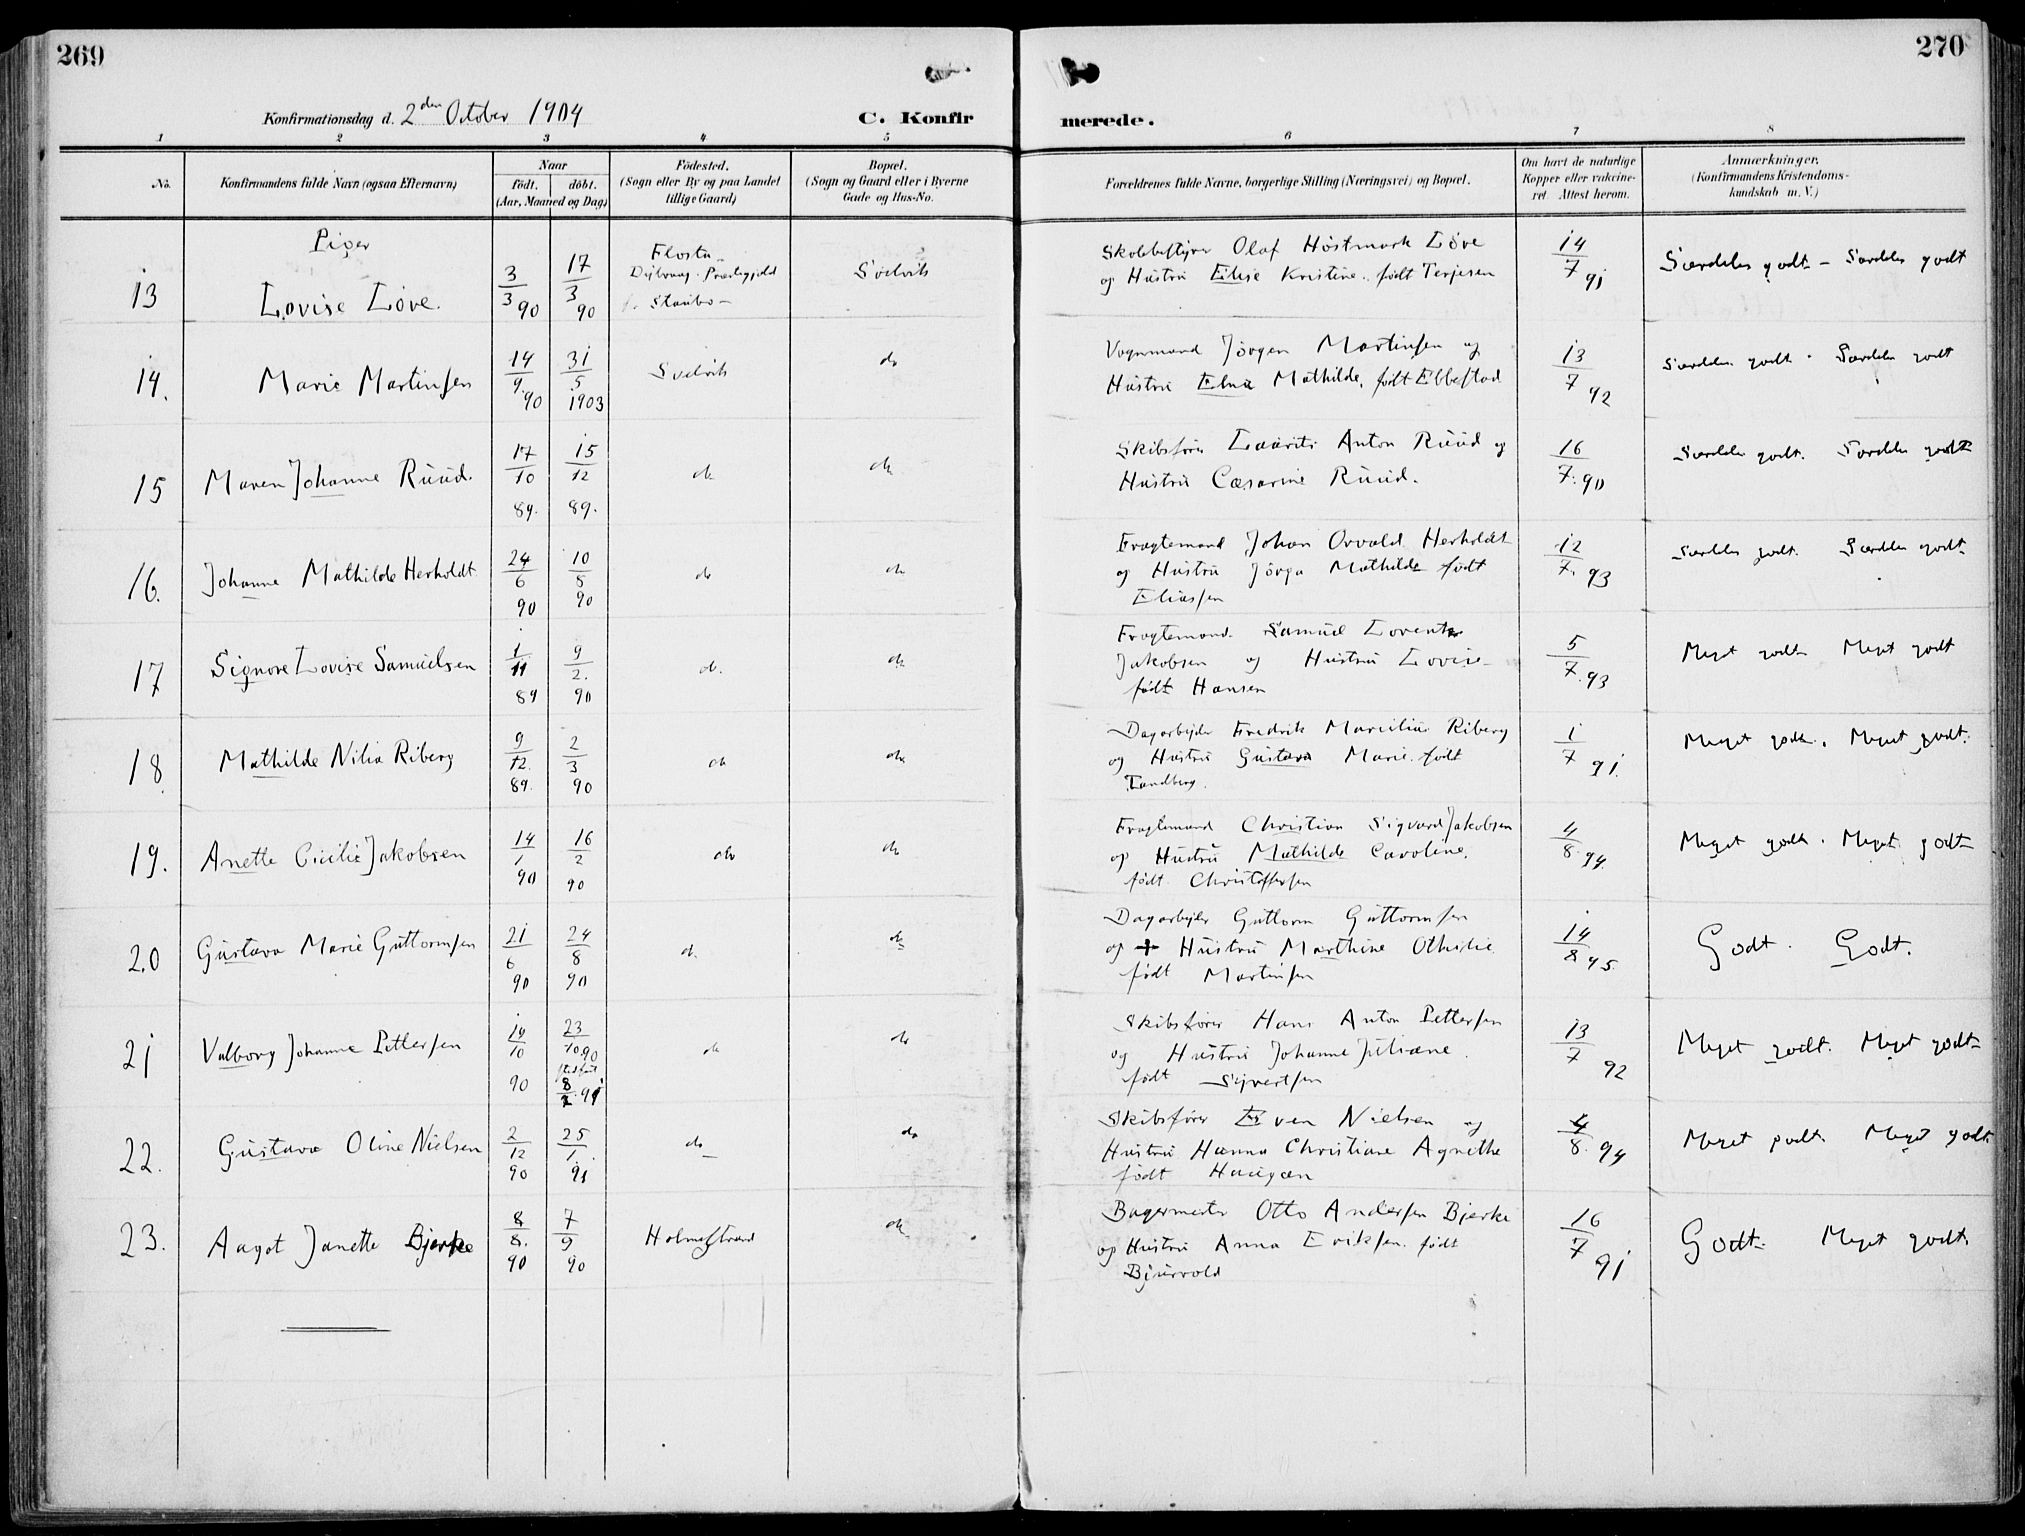 269
270
Konfirmationsdag d. 2den October 1904
C. Konfir
merede.
1 2 3 4 5 6 7 8
No.
Konfirmandens fulde Navn (ogsaa Efternavn)
Naar
født. døbt.
(Aar, Maaned og Dag)
Fødested.
(Sogn eller By og paa Landet
tillige Gaard)
Bopæl.
(Sogn og Gaard eller i Byerne
Gade og Hus-No.
Forældrenes fulde Navne, borgerlige Stilling (Næringsvei) og Bopæl.
Om havt de naturlige
Kopper eller vakcine-
ret Attest herom.
Anmærkninger.
(Konfirmandens Kristendoms-
kundskab m. V.)
Piger
13 Lovise Løve. 3/3 90 17/3 90 Svelvik
Olaf Høstmark Løve
og Hustru Elise Kristine. født Terjesen
14/7 91 Særdeles godt - Særdeles godt
14. Marie Martinsen 14/9. 90 31/5 1903 Svelvik do
Vognmand Jörgen Martinsen og
Hustru Elna Mathilde, født Ebbestad
13/7 92 Særdeles godt. Særdeles godt
15 Maren Johanne Ruud. 17/10 89. 15/12 89. do do
Skibsfører Laurits Anton Ruud og
Hustru Cæsarine Ruud.
16/7. 90 Særdeles godt. Særdeles godt
16. Johanne Mathilde Herholdt 24/6 90 10/8 90 do do
Fragtemand Johan Osvald Herholdt
og Hustru Jörga Mathilde født
Eliassen
12/7. 93 Særdeles godt. Særdeles godt
17 Signore Lovise Samuelsen 1/11 89 9/2. 90 do. do
Fragtemand Samuel Lorents
Jakobsen og Hustru Lovise
født Hansen
5/7. 93 Meget godt Meget godt
18. Mathilde Nilia Riberg 9/12. 89. 2/3 90 do do
Dagarbejder Fredrik Marcilius Riberg
og Hustru Gustava Marie. født
Tandberg.
1/7 91. Meget godt. Meget godt.
19. Anette Cicilie Jakobsen 14/1 90 16/2 90 do do
Fragtemand Christian Sigvard Jakobsen
og Hustru Mathilde Caroline.
født Christoffersen
4/8. 94. Meget godt. Meget godt
20 Gustava Marie Guttormsen 21/6 90 24/8 90 do. do
Dagarbejder Guttorm Guttormsen
og + Hustru Marthine Othilie
født Martinsen
14/8 95. Godt. Godt.
21 Valborg Johanne Pettersen 14/10 90 23/10 90 8/2 91 do do
Skibsfører Hans Anton Pettersen
og Hustru Johanne Juliane.
født Sivertsen
13/7 92 Meget godt. Meget godt
22. Gustava Oline Nielsen 2/12 90 25/1. 91 do do
Skibsfører Even Nielsen og
Hustru Hanna Christiane Agnethe
født Haugan
4/8. 94 Meget godt. Meget godt
23. Aagot Janette Bjerke 8/8. 90 7/9 90 Holmestrand do
Bagermester Otto Andersen Bjerke
og Hustru Anna Eriksen. født
16/7 91 Godt. Meget godt.